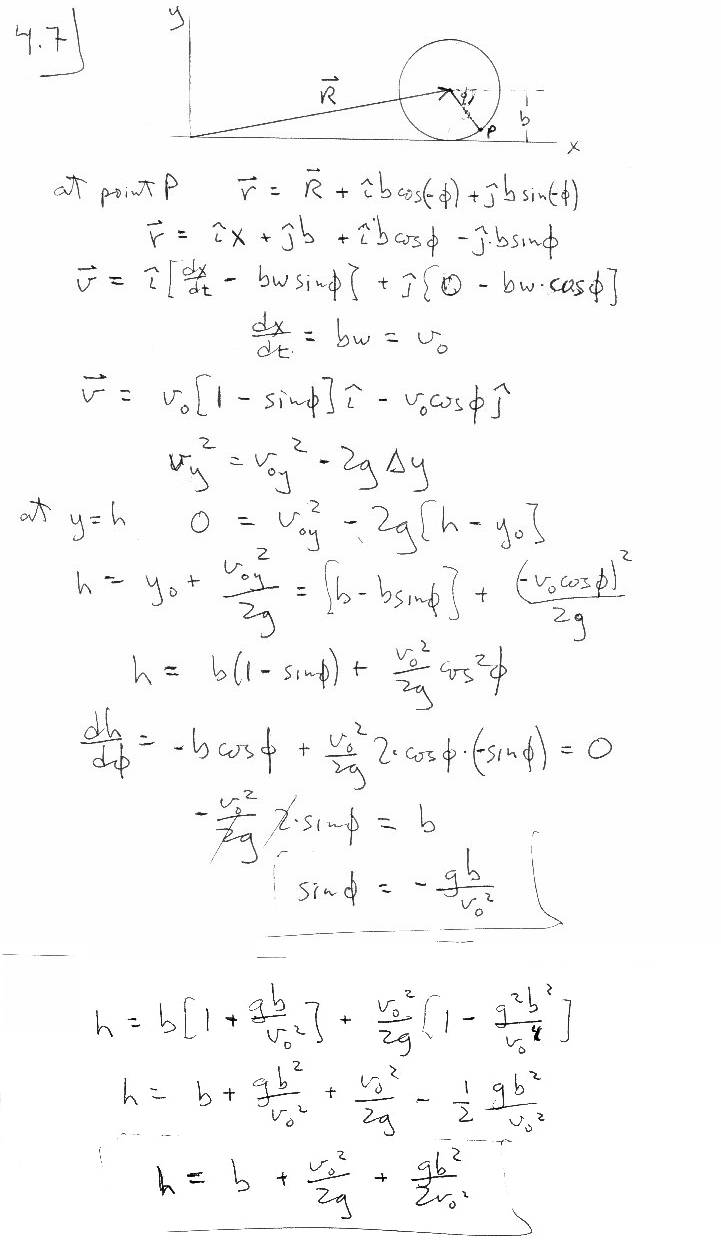 4.7]
y
R⃗
φ
b
P
x
at point P r⃗ = R⃗ + îb cos(-φ) + ĵb sin(-φ)
r⃗ = îx + ĵb + îb cosφ - ĵ·b sinφ
v⃗ = î[dx/dt - bw sinφ] + ĵ[0 - bw·cosφ]
dx/dt = bw = v₀
v⃗ = v₀[1 - sinφ]î - v₀cosφ ĵ
v_y² = v_oy² - 2gΔy
at y=h 0 = v_oy² - 2g[h - y₀]
h = y₀ + v_oy²/2g = [b - b sinφ] + (-v₀cosφ)²/2g
h = b(1 - sinφ) + v₀²/2g cos²φ
dh/dφ = -b cosφ + v₀²/2g 2·cosφ·(-sinφ) = 0
- v₀²/2g 2·sinφ = b
sinφ = - gb/v₀²
h = b[1 + gb/v₀²] + v₀²/2g [1 - g²b²/v₀⁴]
h = b + gb²/v₀² + v₀²/2g - 1/2 gb²/v₀²
h = b + v₀²/2g + gb²/2v₀²